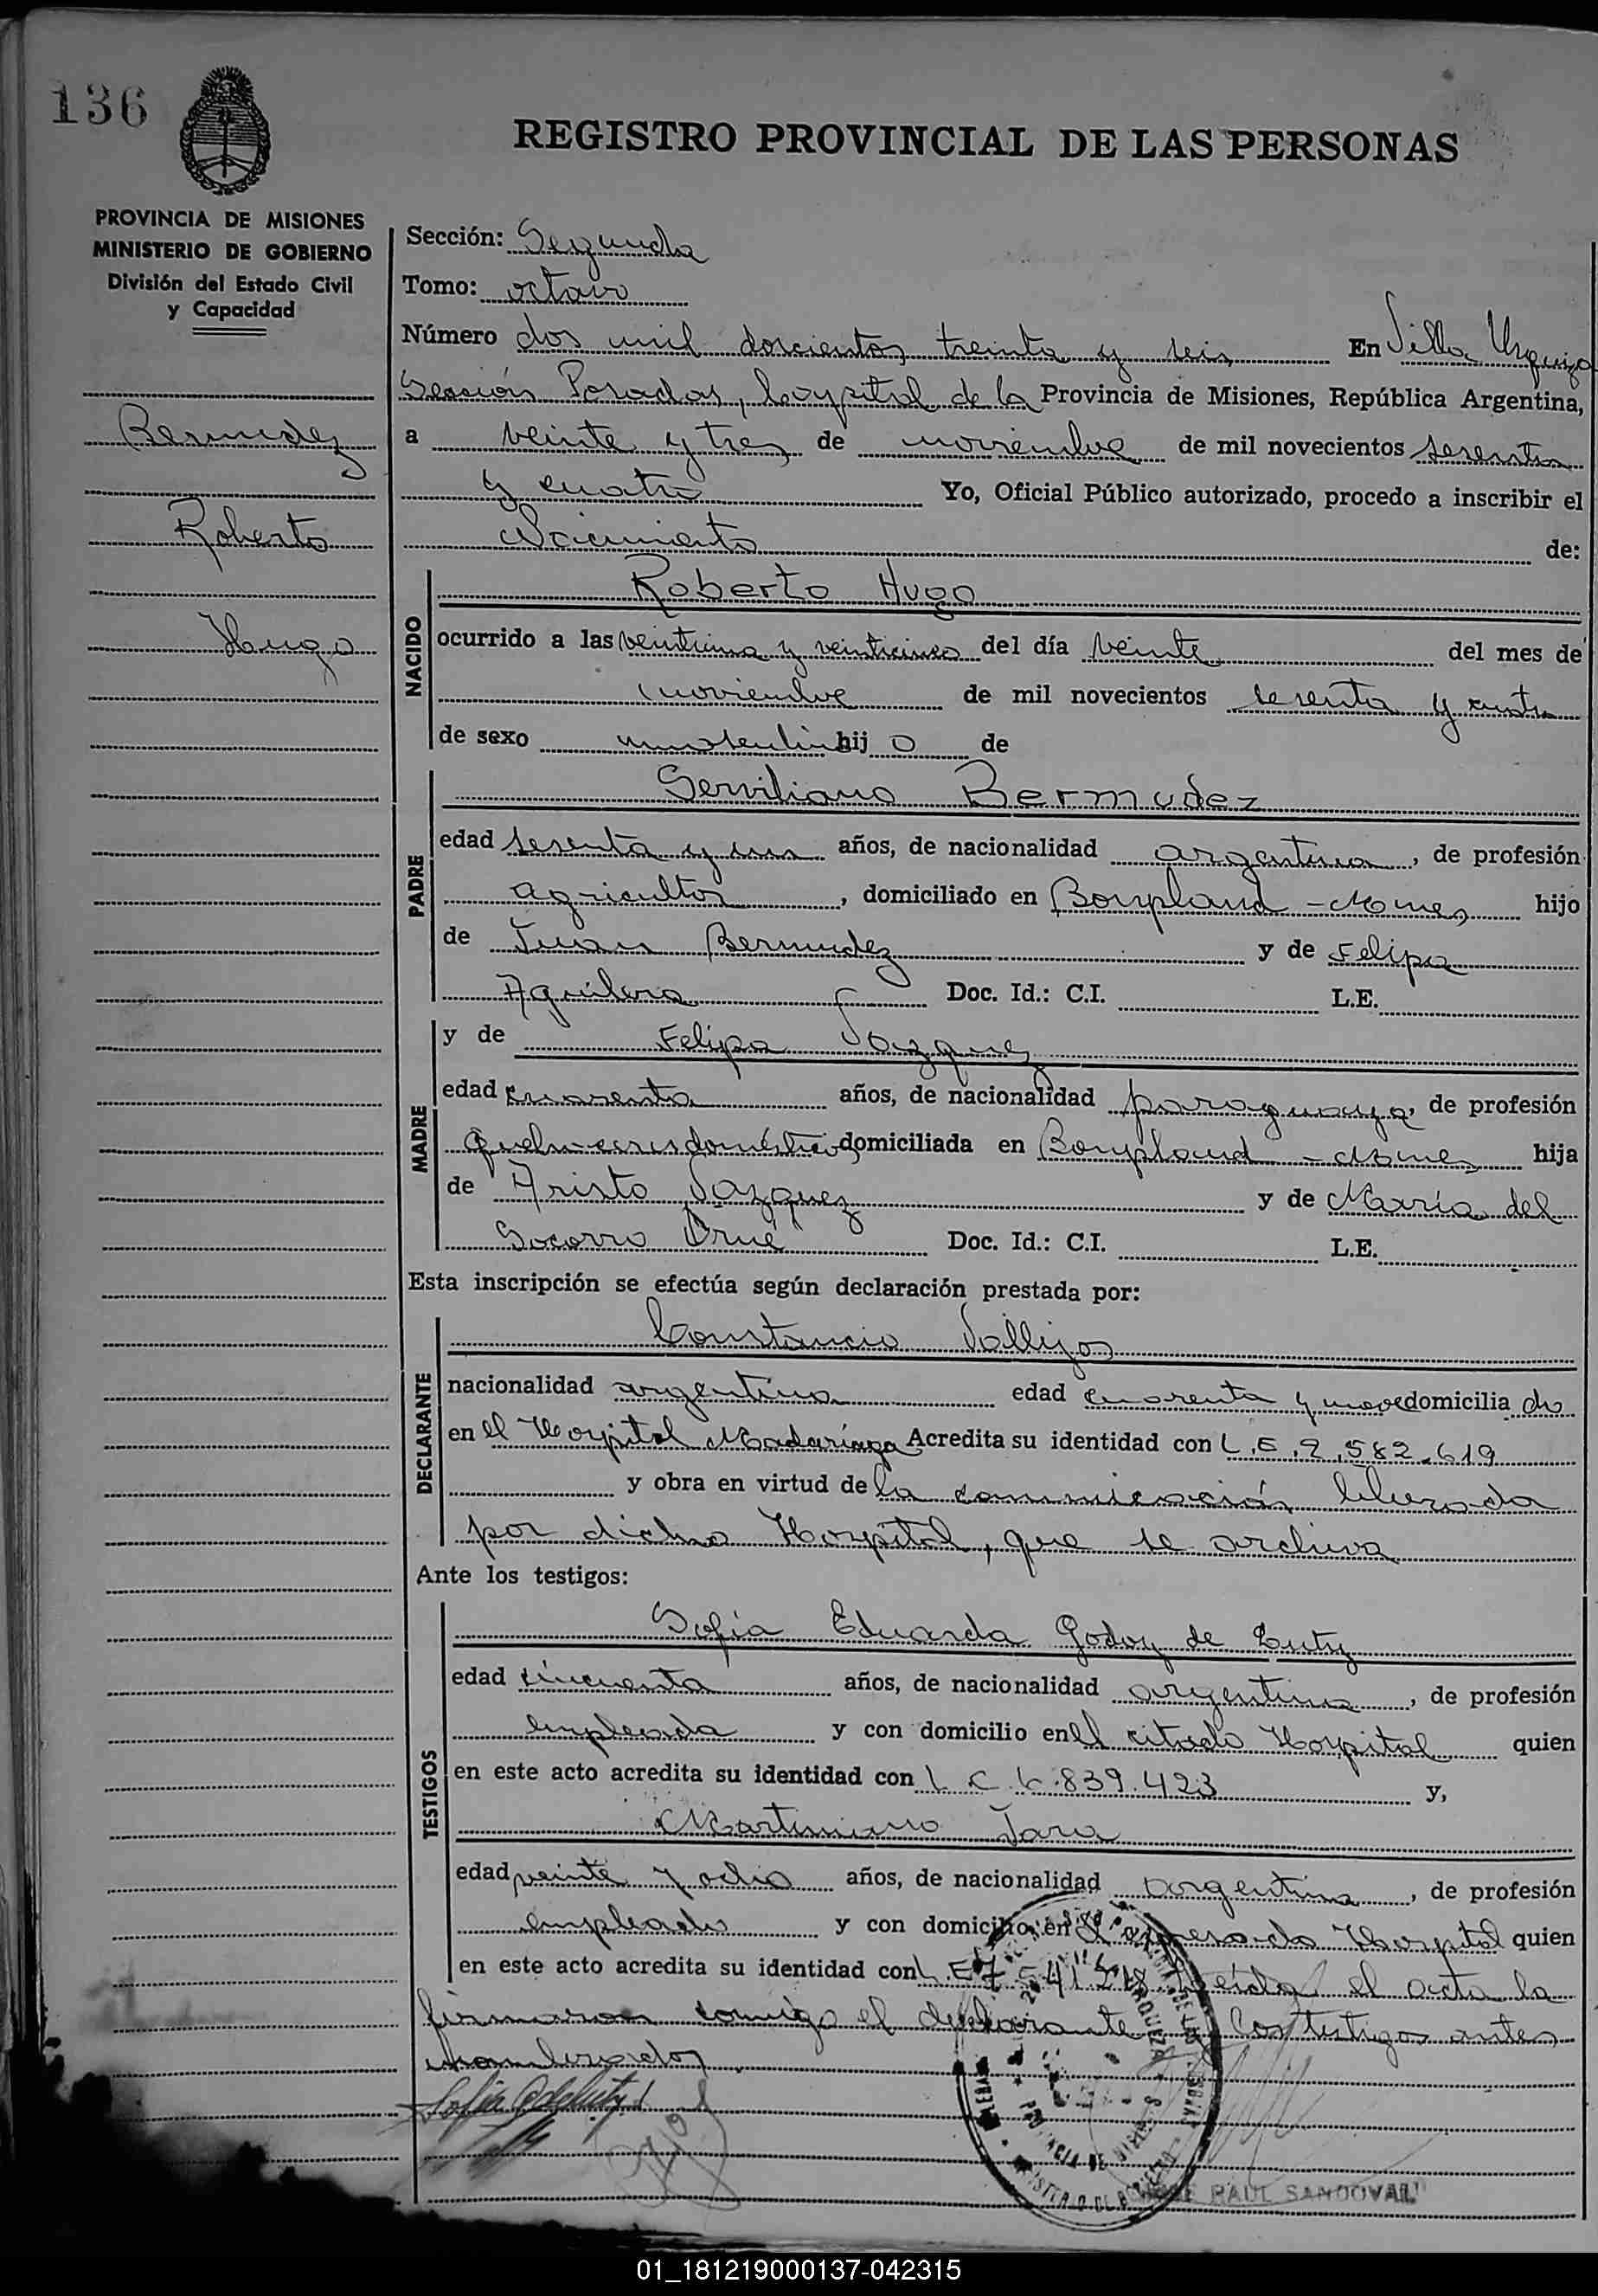 136
REGISTRO PROVINCIAL DE LAS PERSONAS
PROVINCIA DE MISIONES
MINISTERIO DE GOBIERNO
División del Estado Civil
y Capacidad
Bermudez
Roberto
Hugo
Sección: Segunda
Tomo: octavo
Número dos mil doscientos treinta y seis En Villa Urquiza
Sección Posadas, Capital de la Provincia de Misiones, República Argentina,
a veinte y tres de noviembre de mil novecientos sesenta
y cuatro Yo, Oficial Público autorizado, procedo a inscribir el
Nacimiento de:
NACIDO
Roberto Hugo
ocurrido a las veintiuna y veinticinco del día veinte del mes de
noviembre de mil novecientos sesenta y cuatro
de sexo masculino hij o de
PADRE
Serviliano Bermudez
edad sesenta y un años, de nacionalidad argentina, de profesión
agricultor, domiciliado en Bonpland - Mnes hijo
de Juan Bermudez y de Felipa
Aguilera Doc. Id.: C.I. L.E.
MADRE
y de Felipa Vazquez
edad cuarenta años, de nacionalidad paraguaya, de profesión
quehaceres domésticos domiciliada en Bonpland - Mnes hija
de Aristo Vazquez y de María del
Socorro Orué Doc. Id.: C.I. L.E.
Esta inscripción se efectúa según declaración prestada por:
DECLARANTE
Constancio Vallejos
nacionalidad argentina edad cuarenta y nueve domicilia do
en el Hospital Madariaga Acredita su identidad con L.E. 2.582.619
y obra en virtud de la comunicación librada
por dicho Hospital, que se archiva
Ante los testigos:
TESTIGOS
Sofia Eduarda Godoy de
edad cincuenta años, de nacionalidad argentina, de profesión
empleada y con domicilio en el citado Hospital quien
en este acto acredita su identidad con L C 6.839.423 y,
Martiniano Jara
edad veinte y ocho años, de nacionalidad argentina, de profesión
empleado y con domicilio en el expresado Hospital quien
en este acto acredita su identidad con L.E. 7 541 Leída el acta la
firmaron conmigo el declarante y los testigos antes
nombrados
PROVINCIA DE MISIONES
RAUL SANDOVAL
01_181219000137-042315